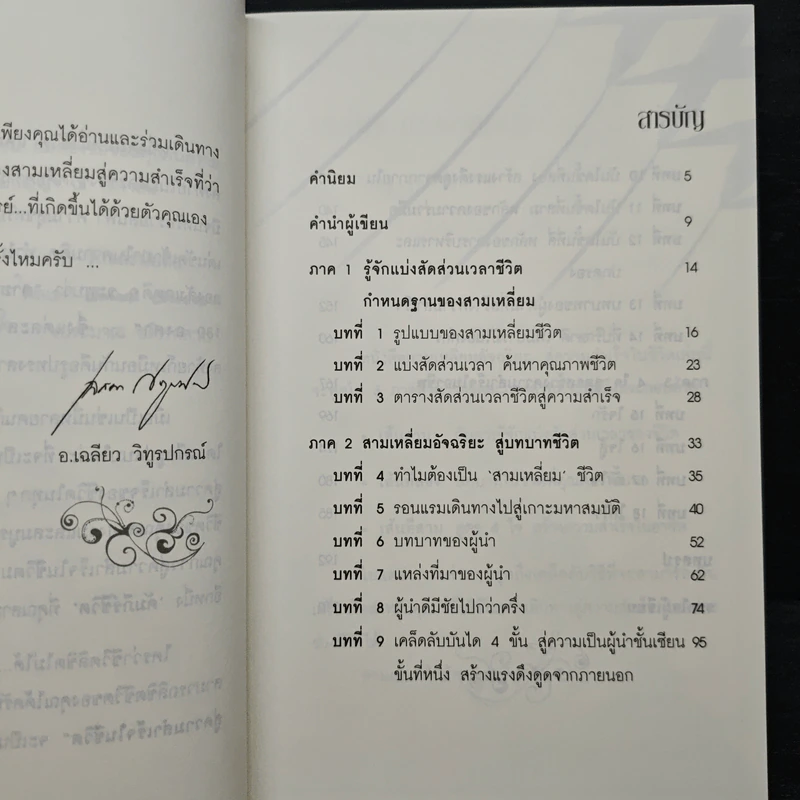 พียงคุณได้อ่านและร่วมเดินทาง
งสามเหลี่ยมสู่ความสำเร็จที่ว่า
รย์...ที่เกิดขึ้นได้ด้วยตัวคุณเอง
รั้งไหมครับ ...
อ.เฉลียว วิทูรปกรณ์
สารบัญ
คำนิยม 5
คำนำผู้เขียน 9
ภาค 1 รู้จักแบ่งสัดส่วนเวลาชีวิต 14
กำหนดฐานของสามเหลี่ยม
บทที่ 1 รูปแบบของสามเหลี่ยมชีวิต 16
บทที่ 2 แบ่งสัดส่วนเวลา ค้นหาคุณภาพชีวิต 23
บทที่ 3 ตารางสัดส่วนเวลาชีวิตสู่ความสำเร็จ 28
ภาค 2 สามเหลี่ยมอัจฉริยะ สู่บทบาทชีวิต 33
บทที่ 4 ทำไมต้องเป็น 'สามเหลี่ยม' ชีวิต 35
บทที่ 5 รอนแรมเดินทางไปสู่เกาะมหาสมบัติ 40
บทที่ 6 บทบาทของผู้นำ 52
บทที่ 7 แหล่งที่มาของผู้นำ 62
บทที่ 8 ผู้นำดีมีชัยไปกว่าครึ่ง 74
บทที่ 9 เคล็ดลับบันได 4 ขั้น สู่ความเป็นผู้นำชั้นเซียน 95
ขั้นที่หนึ่ง สร้างแรงดึงดูดจากภายนอก